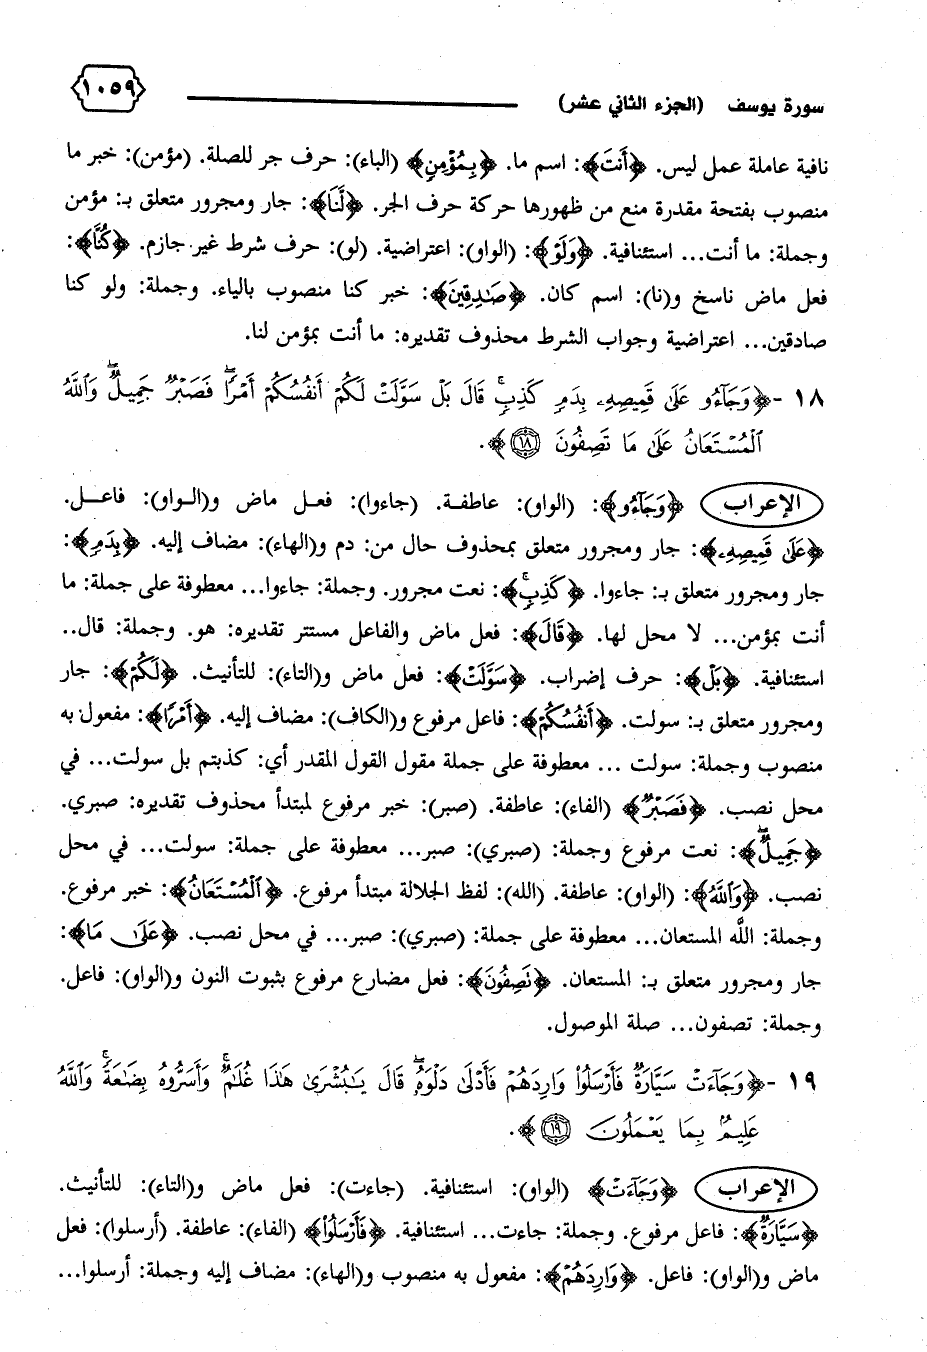 سورة يوسف (الجزء الثاني عشر) ١٠٥٩
نافية عاملة عمل ليس. ﴿أَنتَ﴾: اسم ما. ﴿بِمُؤْمِنٍ﴾ (الباء): حرف جر للصلة. (مؤمن): خبر ما
منصوب بفتحة مقدرة منع من ظهورها حركة حرف الجر. ﴿لَّنَا﴾: جار ومجرور متعلق بـ: مؤمن
وجملة: ما أنت... استئنافية. ﴿وَلَوْ﴾: (الواو): اعتراضية. (لو): حرف شرط غير جازم. ﴿كُنَّا﴾:
فعل ماض ناسخ و(نا): اسم كان. ﴿صَـٰدِقِينَ﴾: خبر كنا منصوب بالياء. وجملة: ولو كنا
صادقين... اعتراضية وجواب الشرط محذوف تقديره: ما أنت بمؤمن لنا.
١٨ -﴿وَجَآءُو عَلَىٰ قَمِيصِهِۦ بِدَمٍ كَذِبٍۚ قَالَ بَلْ سَوَّلَتْ لَكُمْ أَنفُسُكُمْ أَمْرًاۖ فَصَبْرٌ جَمِيلٌۖ وَٱللَّهُ
ٱلْمُسْتَعَانُ عَلَىٰ مَا تَصِفُونَ ١٨﴾.
الإعراب ﴿وَجَآءُو﴾: (الواو): عاطفة. (جاءوا): فعل ماض و(الواو): فاعل.
﴿عَلَىٰ قَمِيصِهِۦ﴾: جار ومجرور متعلق بمحذوف حال من: دم و(الهاء): مضاف إليه. ﴿بِدَمٍ﴾:
جار ومجرور متعلق بـ: جاءوا. ﴿كَذِبٍۚ﴾: نعت مجرور. وجملة: جاءوا... معطوفة على جملة: ما
أنت بمؤمن... لا محل لها. ﴿قَالَ﴾: فعل ماض والفاعل مستتر تقديره: هو. وجملة: قال..
استئنافية. ﴿بَلْ﴾: حرف إضراب. ﴿سَوَّلَتْ﴾: فعل ماض و(التاء): للتأنيث. ﴿لَكُمْ﴾: جار
ومجرور متعلق بـ: سولت. ﴿أَنفُسُكُمْ﴾: فاعل مرفوع و(الكاف): مضاف إليه. ﴿أَمْرًا﴾: مفعول به
منصوب وجملة: سولت ... معطوفة على جملة مقول القول المقدر أي: كذبتم بل سولت... في
محل نصب. ﴿فَصَبْرٌ﴾ (الفاء): عاطفة. (صبر): خبر مرفوع لمبتدأ محذوف تقديره: صبري.
﴿جَمِيلٌۖ﴾: نعت مرفوع وجملة: (صبري): صبر... معطوفة على جملة: سولت... في محل
نصب. ﴿وَٱللَّهُ﴾: (الواو): عاطفة. (الله): لفظ الجلالة مبتدأ مرفوع. ﴿ٱلْمُسْتَعَانُ﴾: خبر مرفوع.
وجملة: اللَّه المستعان... معطوفة على جملة: (صبري): صبر... في محل نصب. ﴿عَلَىٰ مَا﴾:
جار ومجرور متعلق بـ: المستعان. ﴿تَصِفُونَ﴾: فعل مضارع مرفوع بثبوت النون و(الواو): فاعل.
وجملة: تصفون... صلة الموصول.
١٩ -﴿وَجَآءَتْ سَيَّارَةٌ فَأَرْسَلُوا۟ وَارِدَهُمْ فَأَدْلَىٰ دَلْوَهُۥۖ قَالَ يَـٰبُشْرَىٰ هَـٰذَا غُلَـٰمٌۚ وَأَسَرُّوهُ بِضَـٰعَةًۚ وَٱللَّهُ
عَلِيمٌۢ بِمَا يَعْمَلُونَ ١٩﴾.
الإعراب ﴿وَجَآءَتْ﴾ (الواو): استئنافية. (جاءت): فعل ماض و(التاء): للتأنيث.
﴿سَيَّارَةٌ﴾: فاعل مرفوع. وجملة: جاءت... استئنافية. ﴿فَأَرْسَلُوا۟﴾ (الفاء): عاطفة. (أرسلوا): فعل
ماض و(الواو): فاعل. ﴿وَارِدَهُمْ﴾: مفعول به منصوب و(الهاء): مضاف إليه وجملة: أرسلوا...